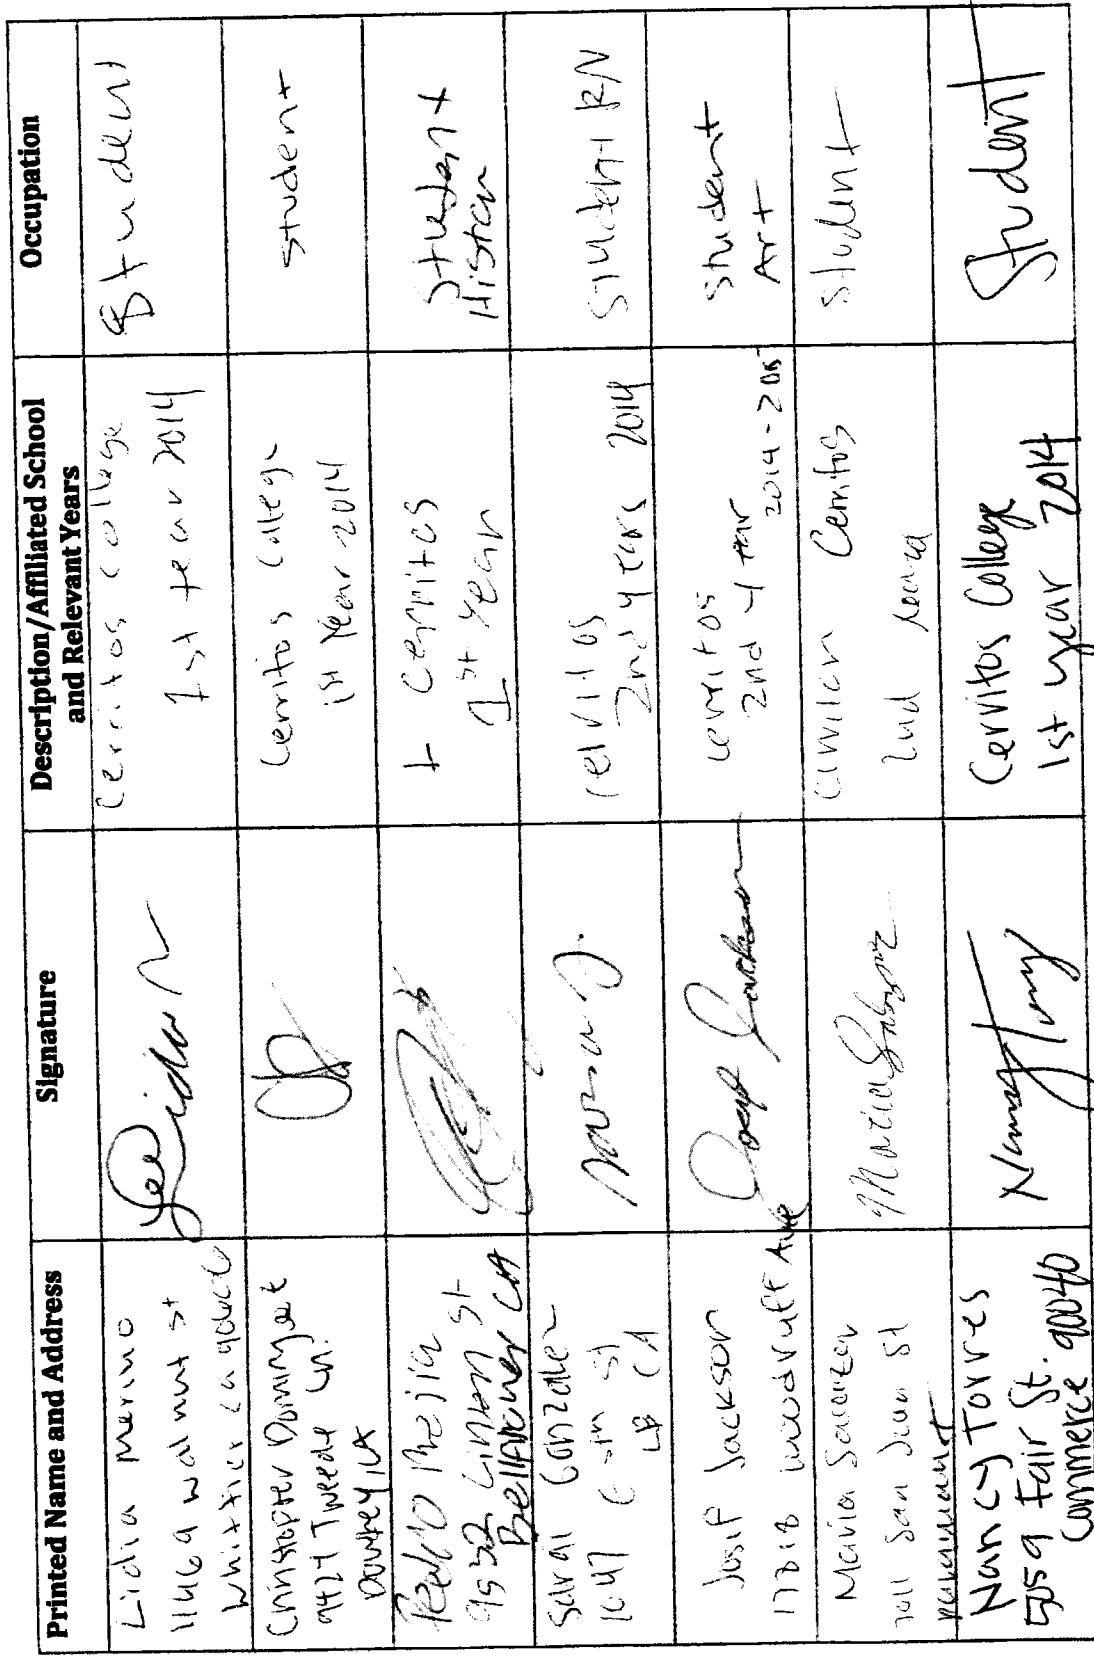 Printed Name and Address
Signature
Description/Affiliated School
and Relevant Years
Occupation
Lidia Merino
11469 walnut st
Whittier ca
Lidia
Cerritos college
1st year 2014
Student
Christopher
9424 Tweedy Ln.
Downey, CA
Cerritos College
1st Year 2014
student
Pedro Mejia
9532 Linden st
Bellflower CA
Cerritos
1st year
Student
History
Sarai Gonzalez
St
LB CA
Cerritos
2nd years 2014
Student RN
Josif Jackson
17818 woodruff Ave
Josif Jackson
Cerritos
2nd year
2014-2015
Student
Art
Maria
San Juan St
paramount
Maria
Cerritos
2nd
Student
Nancy Torres
5059 Fair St.
Commerce 90040
Nancy Torres
Cerritos College
1st year 2014
Student